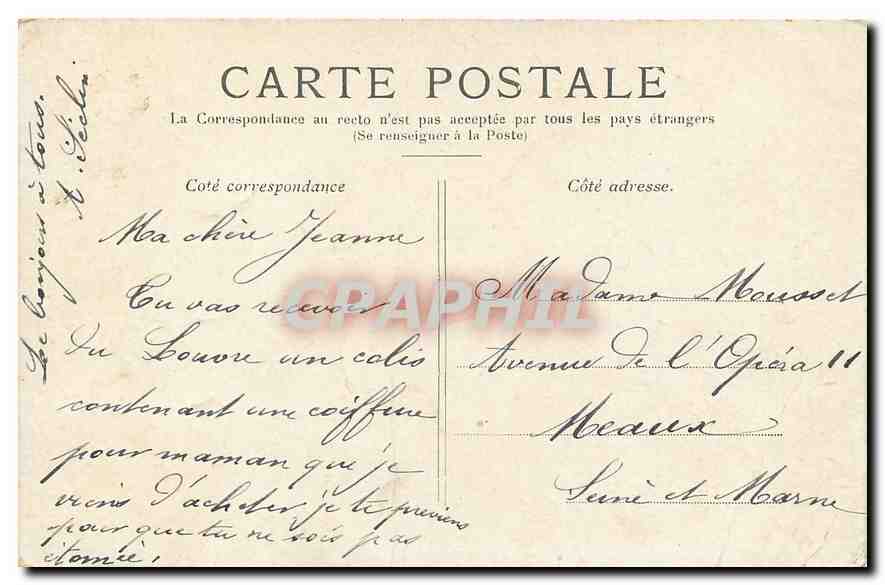 CARTE POSTALE
La Correspondance au recto n'est pas acceptée par tous les pays étrangers
(Se renseigner à la Poste)
Coté correspondance
Côté adresse.
Ma chère Jeanne
Tu vas recevoir
du Louvre un colis
contenant une coiffure
pour maman que je
viens d'acheter je te préviens
pour que tu ne sois pas
étonnée.
Le bonjour à tous.
A.
Madame Mousset
Avenue de l'Opéra 11
Meaux
Seine et Marne
CPAPHIL